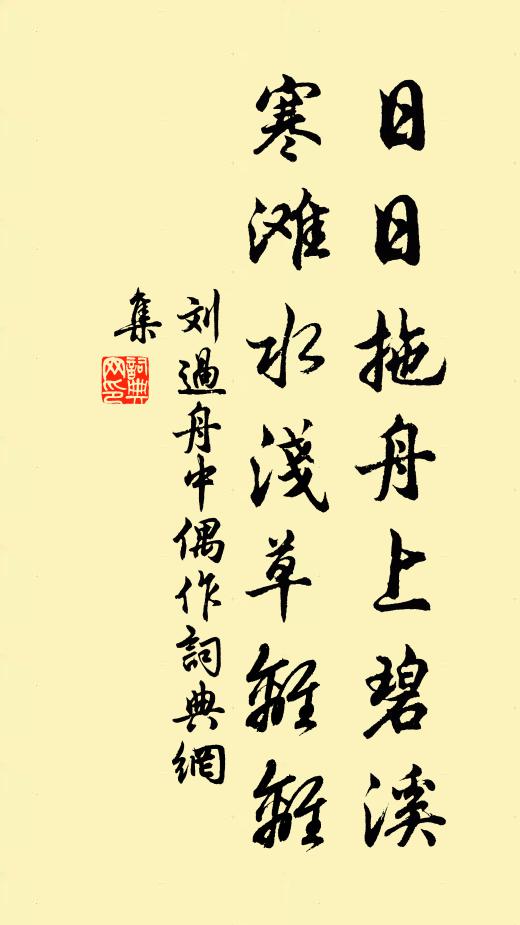 日日拖舟上碧溪
寒滩水淺草離離
刘過舟中偶作詞典網
集
詞典
网印